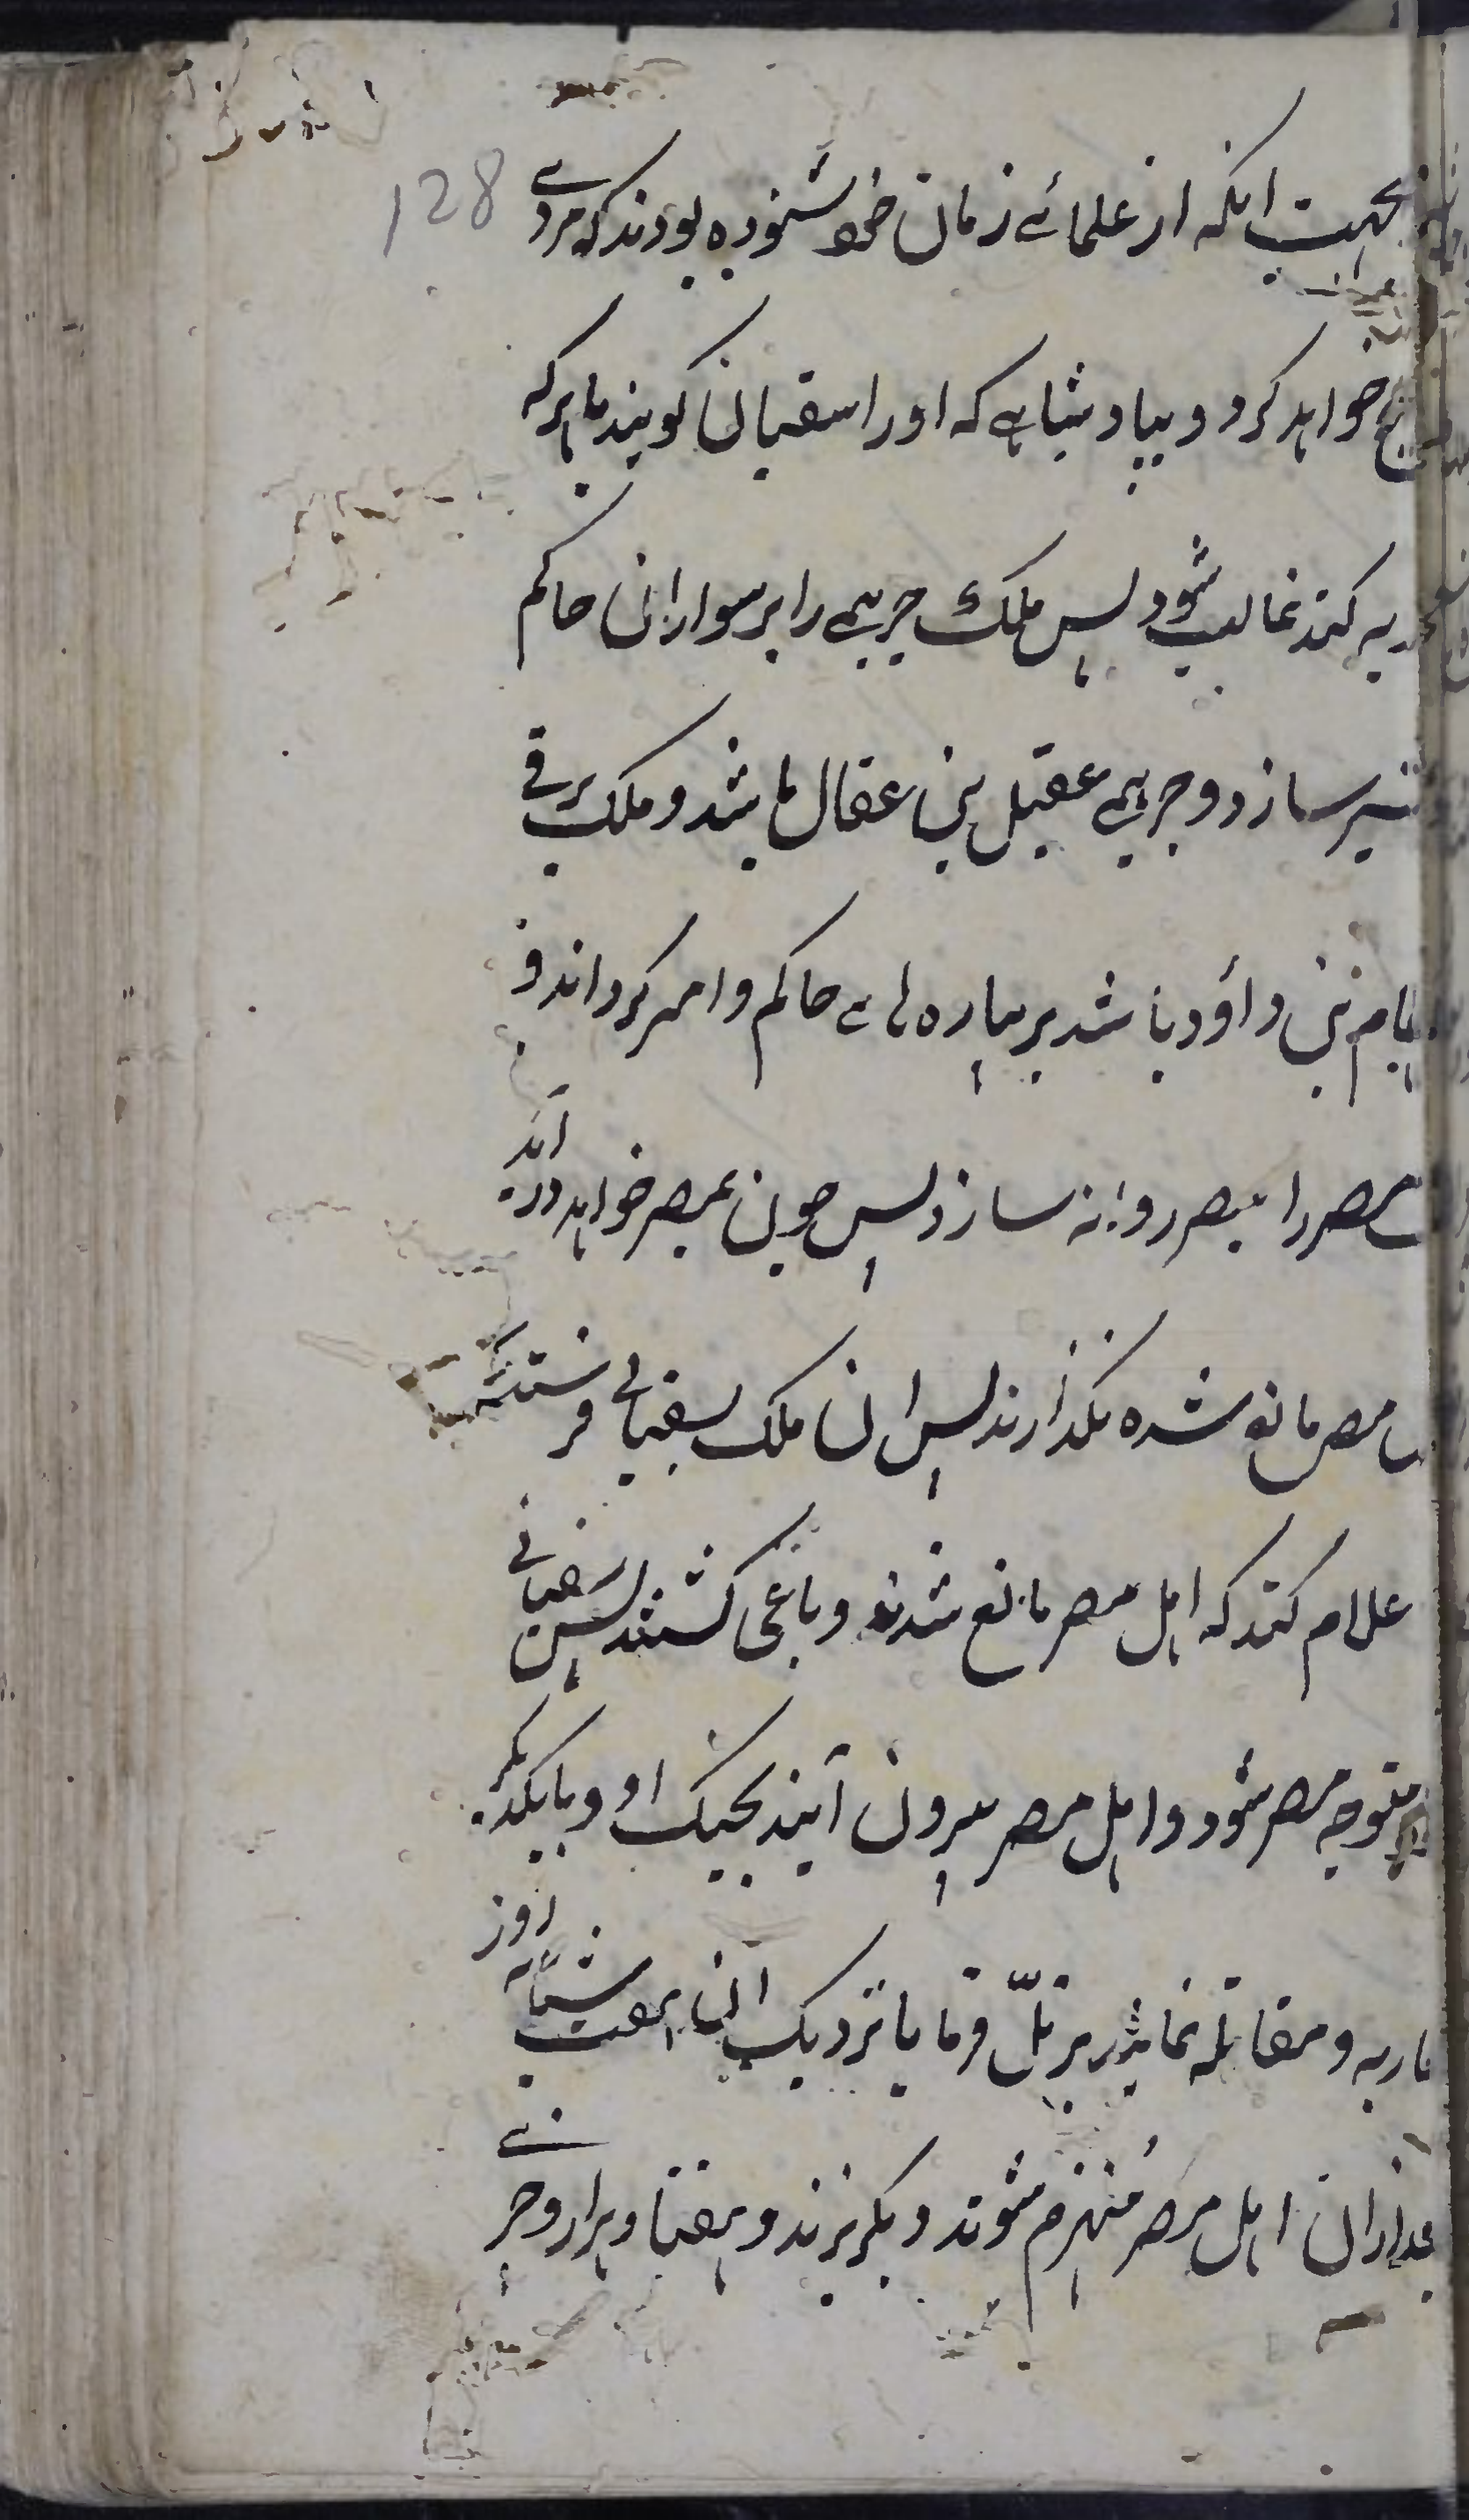 128
بجهت انکه از علمائے زمان خود شنوده بودند که مردے
خواهد کرد و بیاد شاہے که اورا سقیانی کویند با هر که
کند غالب شود پس ملک جرہمے را بر سواران حاکم
سازد و جرہمے عقیل بن عقال باشد و ملک برقے
بن داؤد باشد بر پیاده ہاے حاکم و امیر کرداند و
مصر را بمصر روانه سازد پس چون بمصر خواهد در آید
مصر مانع شده نکذارند پس ان ملک سفیانی فرستد
علام کند که اهل مصر مانع شدند و باغی کشتند پس سفیانی
متوجه مصر شود و اهل مصر بیرون آیند بجنک او و با یکدیکر
و مقاتله نمایند بر تلّ فرما یا نزدیک آن هفت شبانه روز
بعد ازان اهل مصر مُنهزم شوند و بکریزند و هفتاد هزار و جر